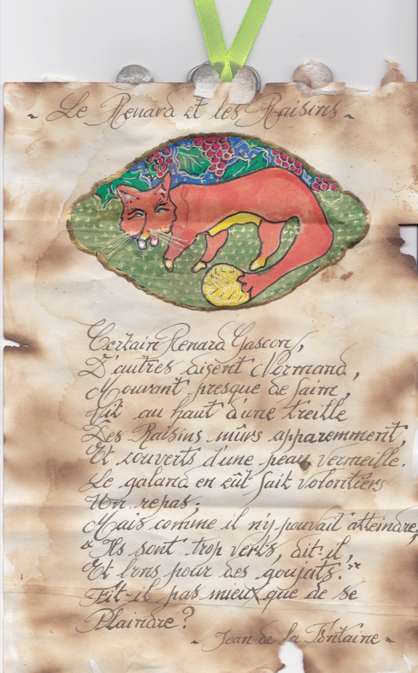 ~ Le Renard et les Raisins ~
Certain Renard Gascon,
D'autres disent Normand,
Mourant presque de faim,
Vit au haut d'une treille
Des Raisins mûrs apparemment,
Et couverts d'une peau vermeille.
Le galand en eût fait volontiers
Un repas;
Mais comme il n'y pouvait atteindre,
"Ils sont trop verts, dit-il,
Et bons pour des goujats."
Fit-il pas mieux que de se
Plaindre?
~ Jean de la Fontaine ~